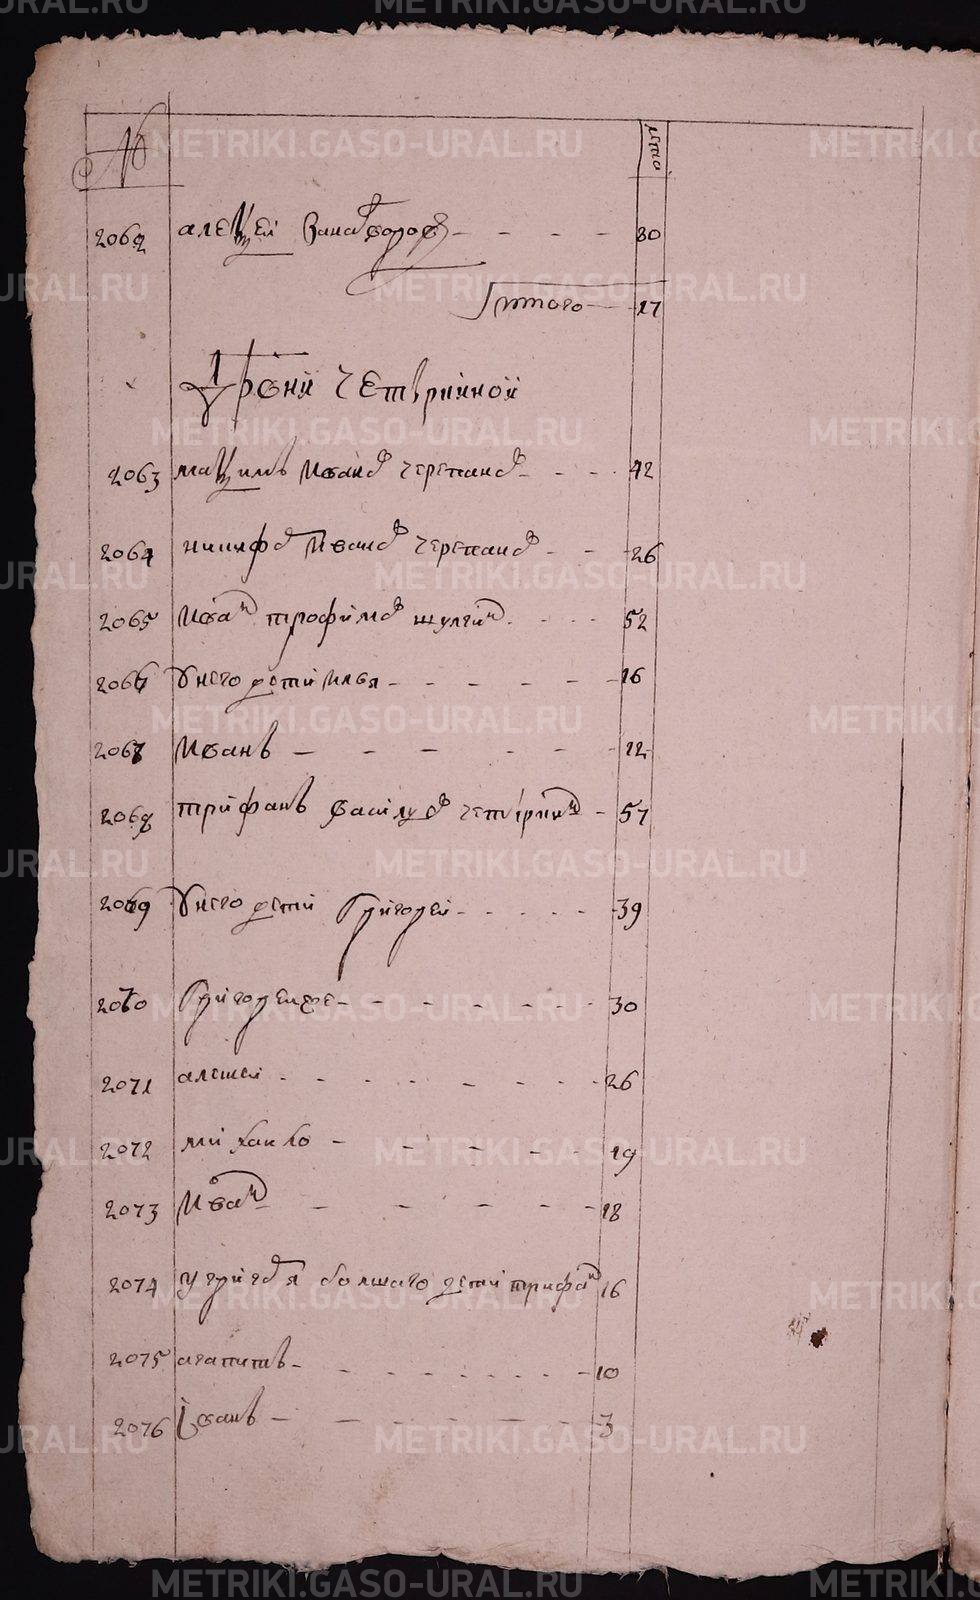 № лета
2062 алеѯей 80
итого 17
Дрвни четвриной
2063 маѯимъ Иванов черепанов 42
2064 Иванов черепанов 26
2065 Иван трофимов шулгин 52
2066 У него дети Илья 16
2067 Иванъ 12
2068 трифанъ василиев 57
2069 У него дети Григорей 39
2070 Григорей же 30
2071 алеѯей 26
2072 михаило 19
2073 Иван 18
2074 У григоря болшаго дети трифан 16
2075 агапитъ 10
2076 Іванъ 3
METRIKI.GASO-URAL.RU